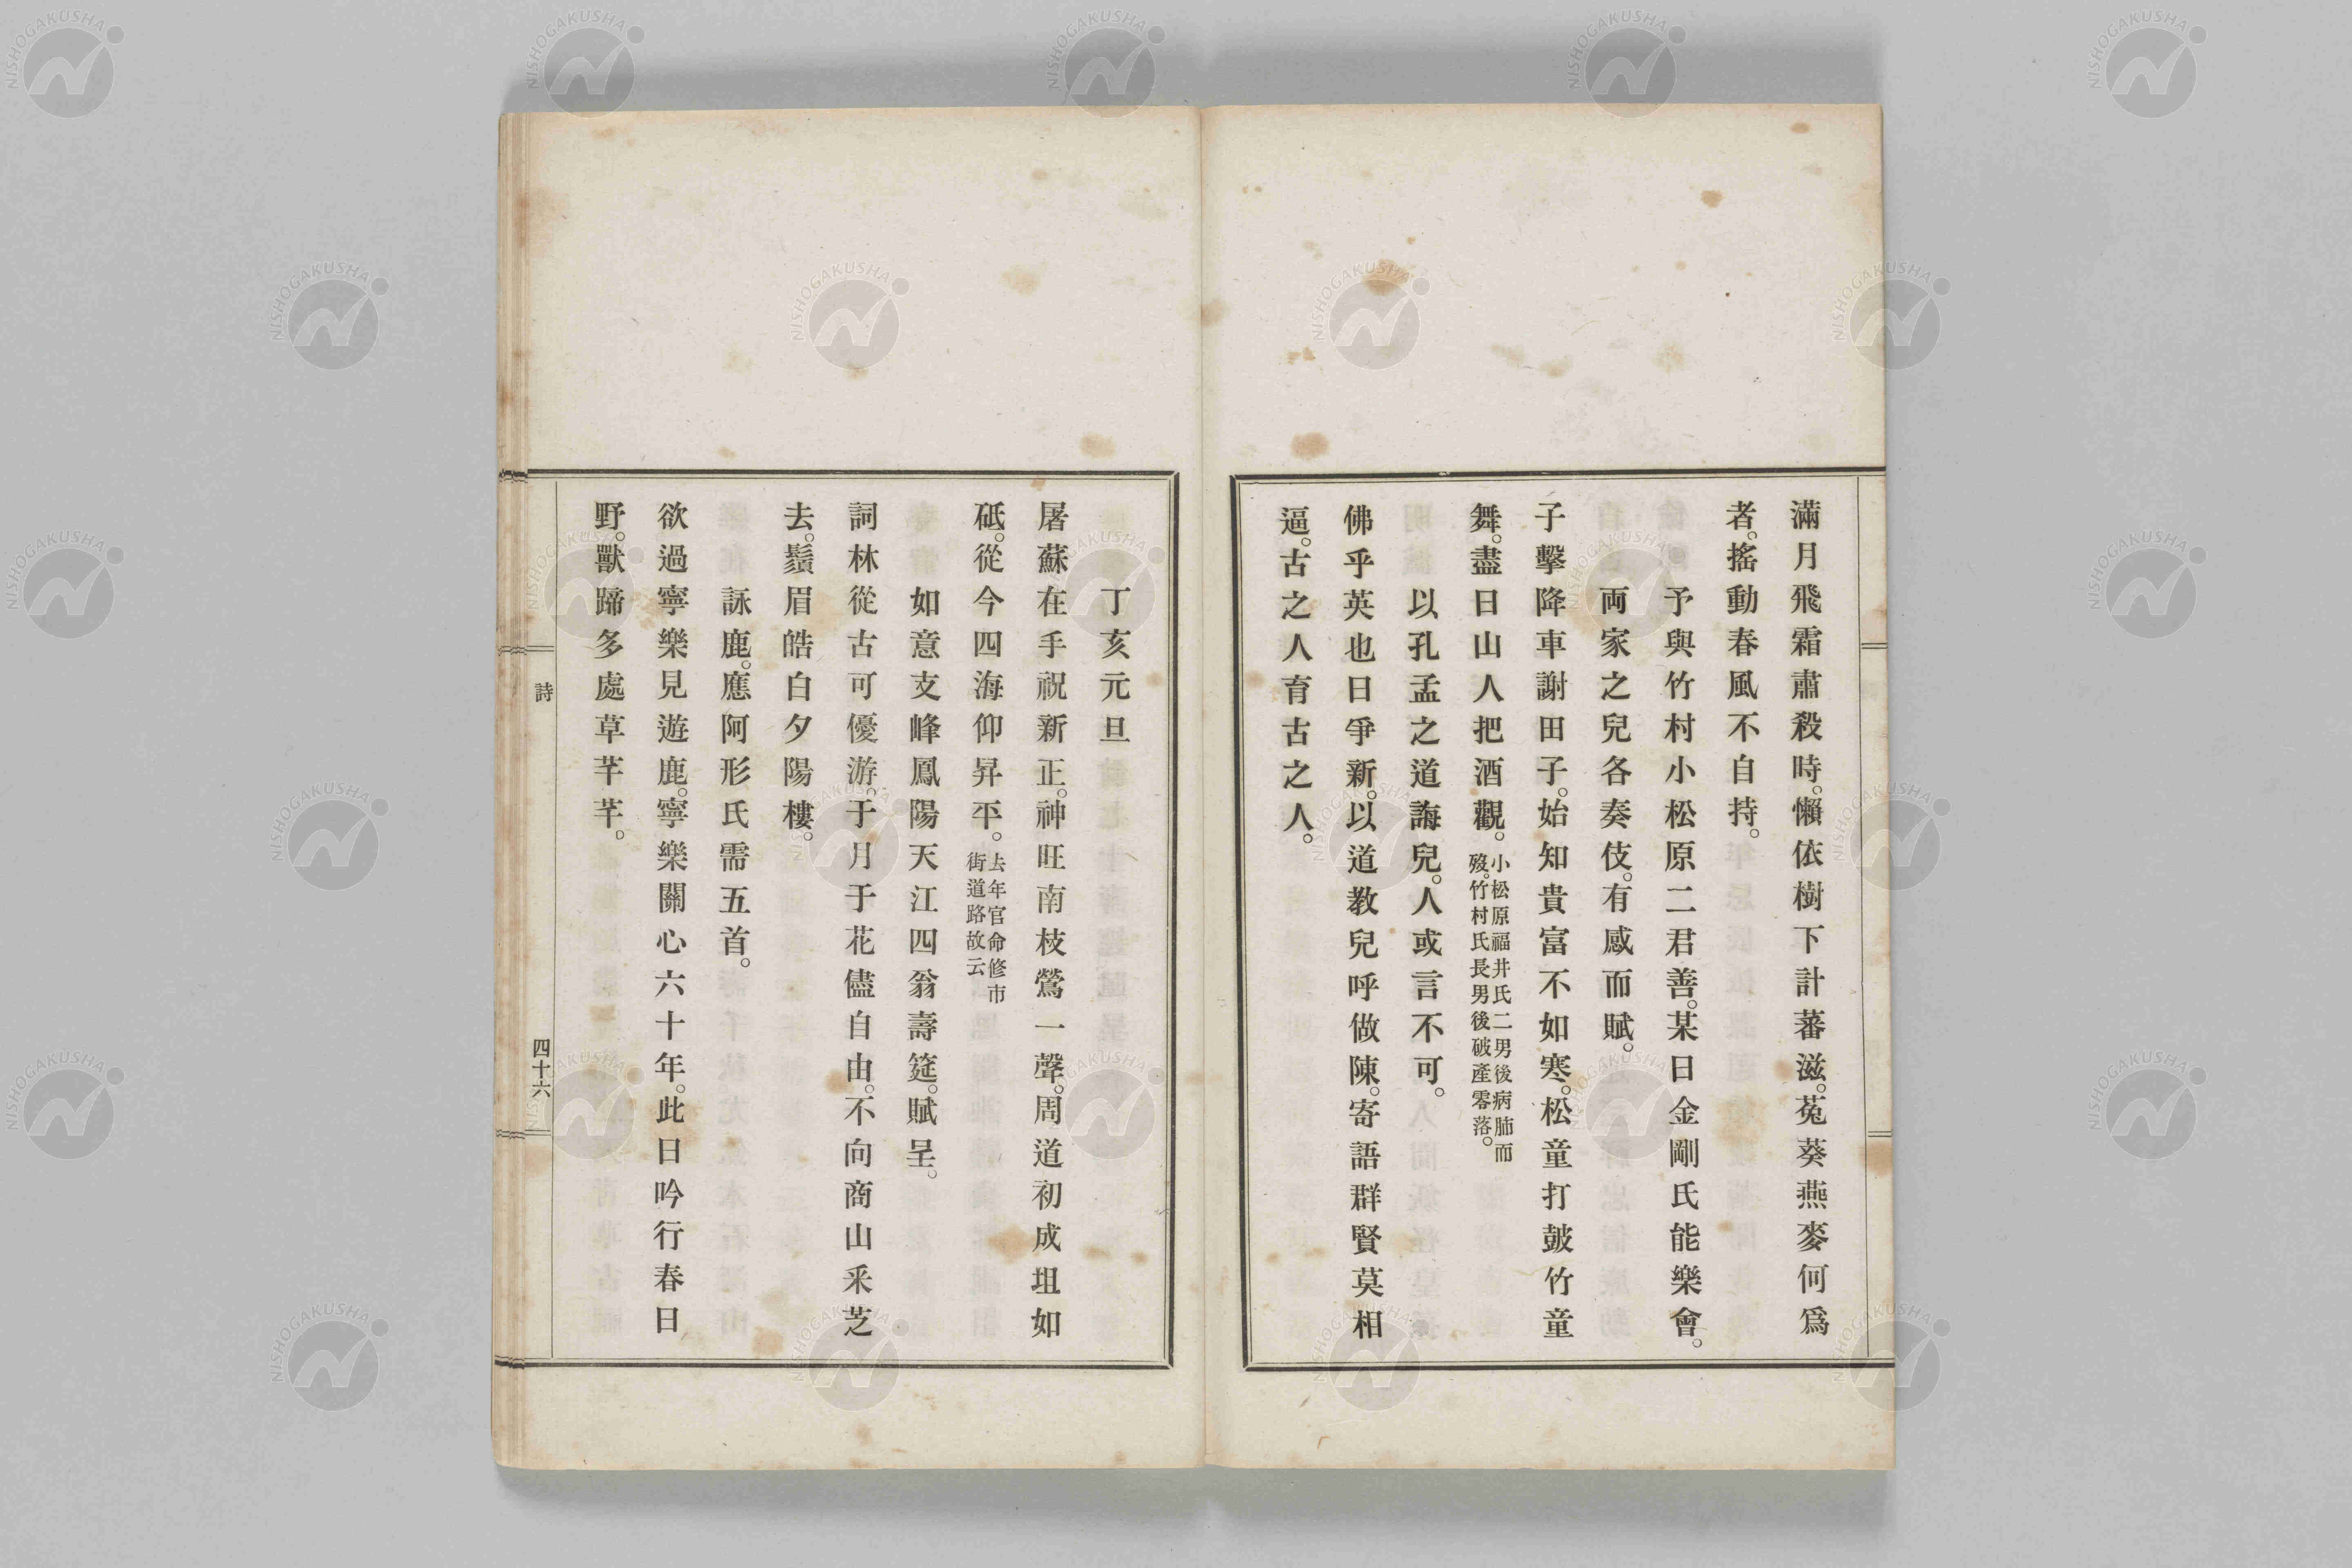 滿月飛霜肅殺時。懶依樹下計蕃滋。菟葵燕麥何爲
者。搖動春風不自持。
予與竹村小松原二君善。某日金剛氏能樂會。
両家之兒各奏伎。有感而賦。
子擊降車謝田子。始知貴富不如寒。松童打皷竹童
舞。盡日山人把酒觀。小松原福井氏二男後病肺而
歿。竹村氏長男後破產零落。
以孔孟之道誨兒。人或言不可。
佛乎英也日爭新。以道教兒呼做陳。寄語群賢莫相
逼。古之人育古之人。
丁亥元旦
屠蘇在手祝新正。神旺南枝鶯一聲。周道初成坦如
砥。從今四海仰昇平。去年官命修市
街道路故云
如意支峰鳳陽天江四翁壽筵。賦呈。
詞林從古可優游。于月于花儘自由。不向商山釆芝
去。鬚眉皓白夕陽樓。
詠鹿。應阿形氏需五首。
欲過寧樂見遊鹿。寧樂關心六十年。此日吟行春日
野。獸蹄多處草芊芊。
詩
四十六
NISHOGAKUSHA